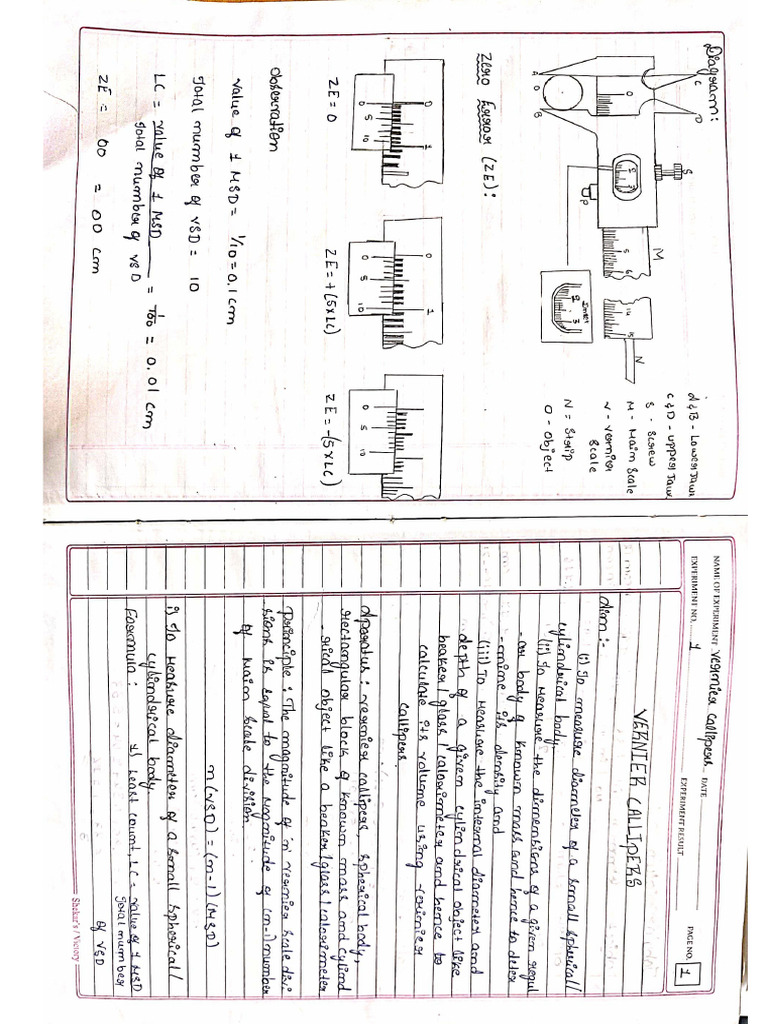 Diagram:
C
D
0
A
O
B
S
P
M
5
6
14
15
N
Inset
2
3
A&B - Lower Jaws
C&D - upper Jaws
S - Screw
M - Main Scale
V - Vernier
Scale
N = Strip
O - Object
Zero Error (ZE):
0
1
0
5
10
ZE = 0
0
1
0
5
10
ZE = +(5xLC)
0
1
0
5
10
ZE = -(5xLC)
Observation
Value of 1 MSD = 1/10 = 0.1 cm
Total number of VSD = 10
LC = value of 1 MSD / Total number of VSD = 1/100 = 0.01 cm
ZE = 00 = 00 cm
NAME OF EXPERIMENT Vernier Callipers DATE
EXPERIMENT NO. 1 EXPERIMENT RESULT PAGE NO. 1
VERNIER CALLIPERS
Aim :-
(i) To measure diameter of a small spherical/
cylindrical body.
(ii) To Measure the dimensions of a given regul
-ar body of known mass and hence to deter
-mine its density and
(iii) To Measure the internal diameter and
depth of a given cylindrical object like
beaker/glass/calorimeter and hence to
calculate its volume using vernier
callipers.
Aparatus : vernier callipers, spherical body,
rectangular block of known mass and cylind
-rical object like a beaker/glass/calorimeter
Principle : The magnitude of 'n' vernier scale divi
sions is equal to the magnitude of (n-1) number
of Main scale division
n(VSD) = (n-1)(MSD)
i) To Measure diameter of a small spherical/
cylindrical body.
Formula : 1) Least count, LC = value of 1 MSD
Total number
of VSD
Shekar's / Victory